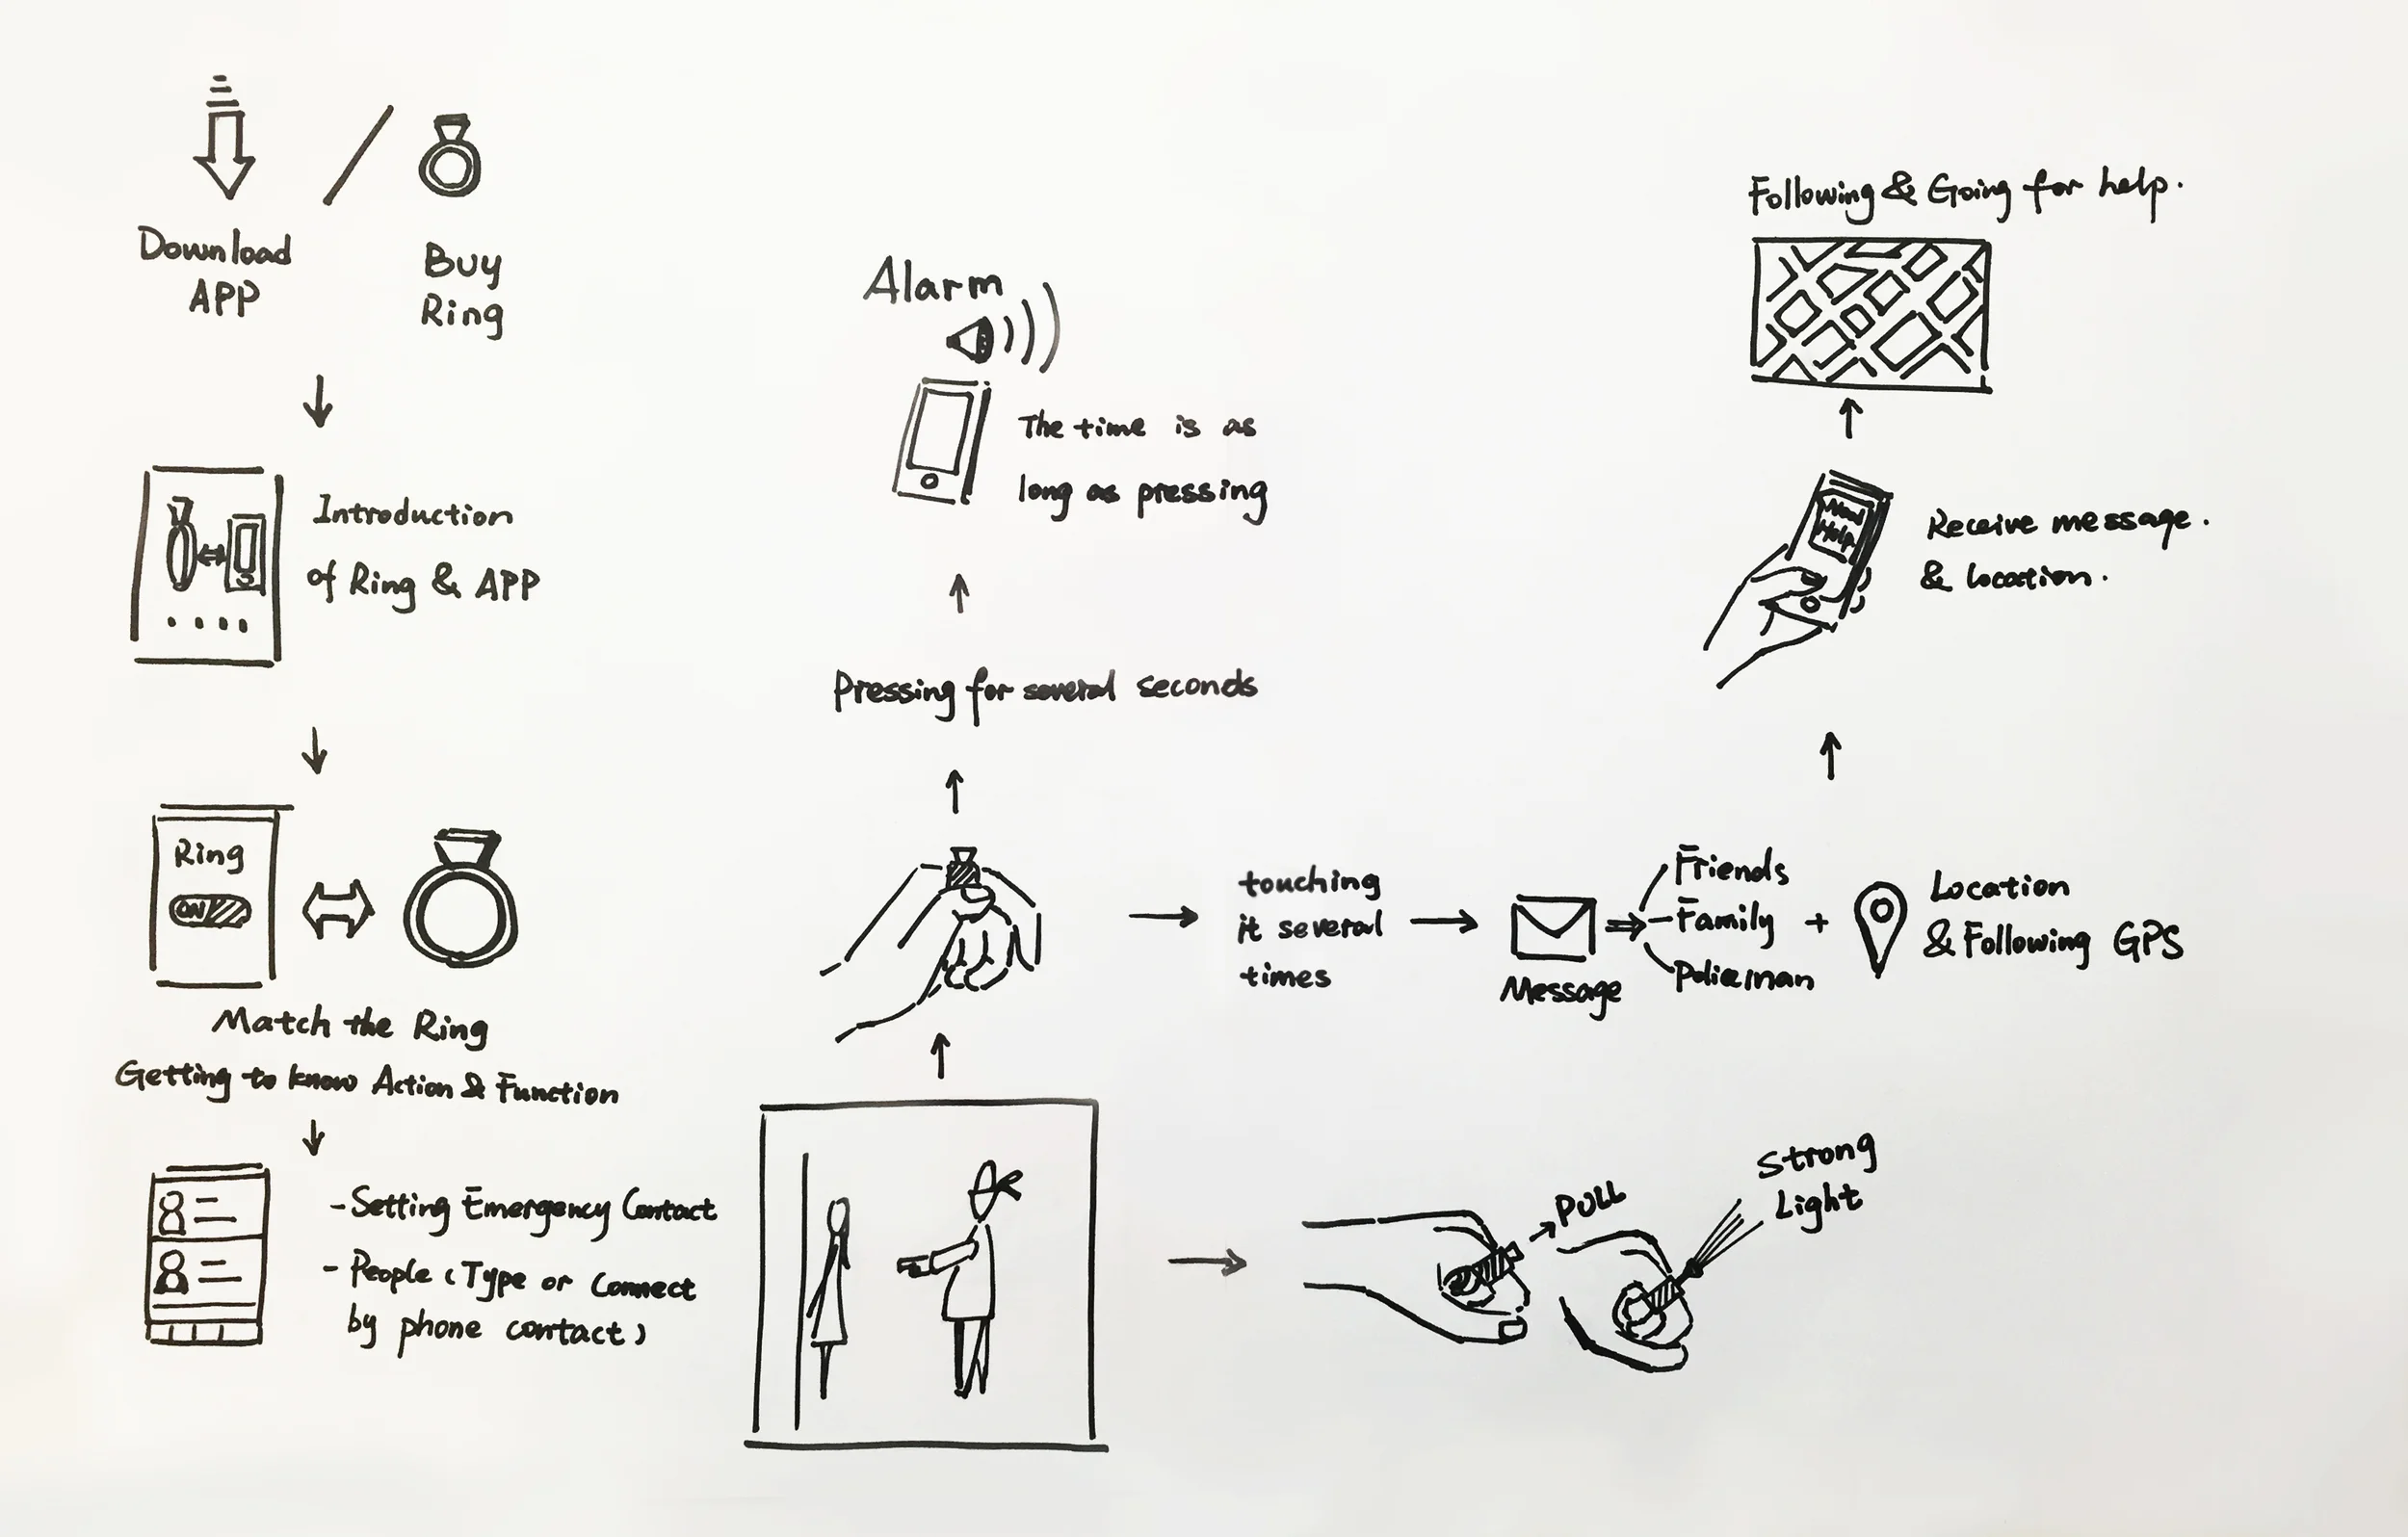 Download
APP
Buy
Ring
Introduction
of Ring & APP
Ring
ON
Match the Ring
Getting to know Action & Function
- Setting Emergency Contact
- People (Type or Connect
by phone contact)
Alarm
The time is as
long as pressing
Pressing for several seconds
touching
it several
times
Message
Friends
Family
Policeman
+
Location
& Following GPS
Need
Help
Receive message.
& location.
Following & Going for help.
PULL
Strong
Light